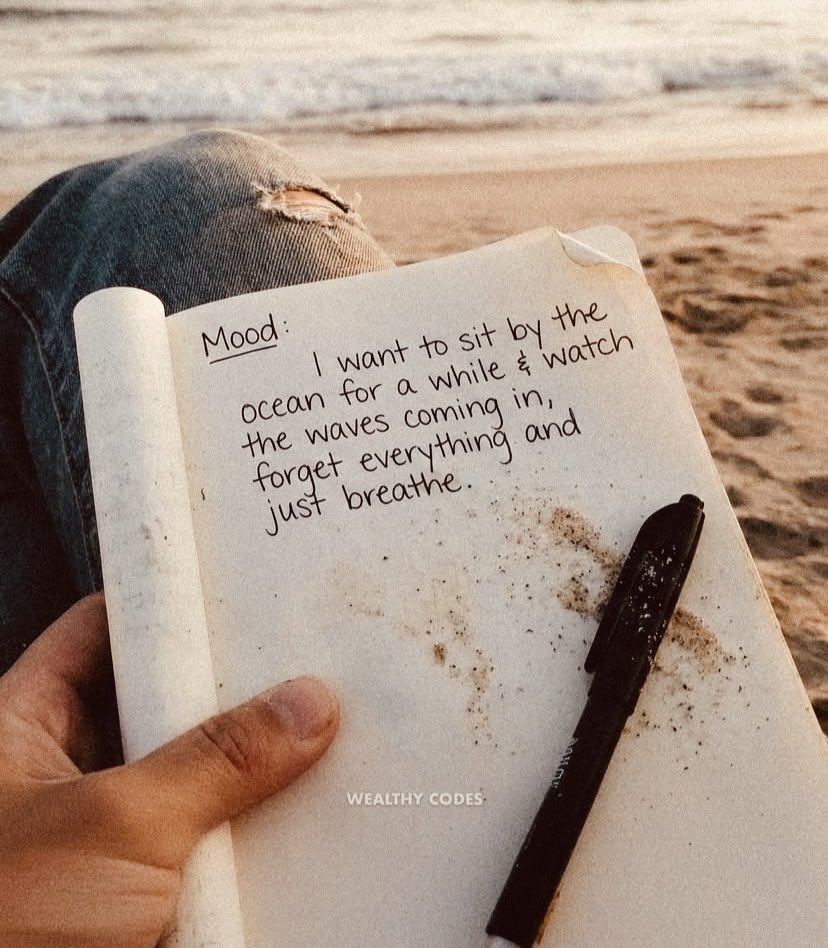 Mood:
I want to sit by the
ocean for a while & watch
the waves coming in,
forget everything and
just breathe.
WEALTHY CODES